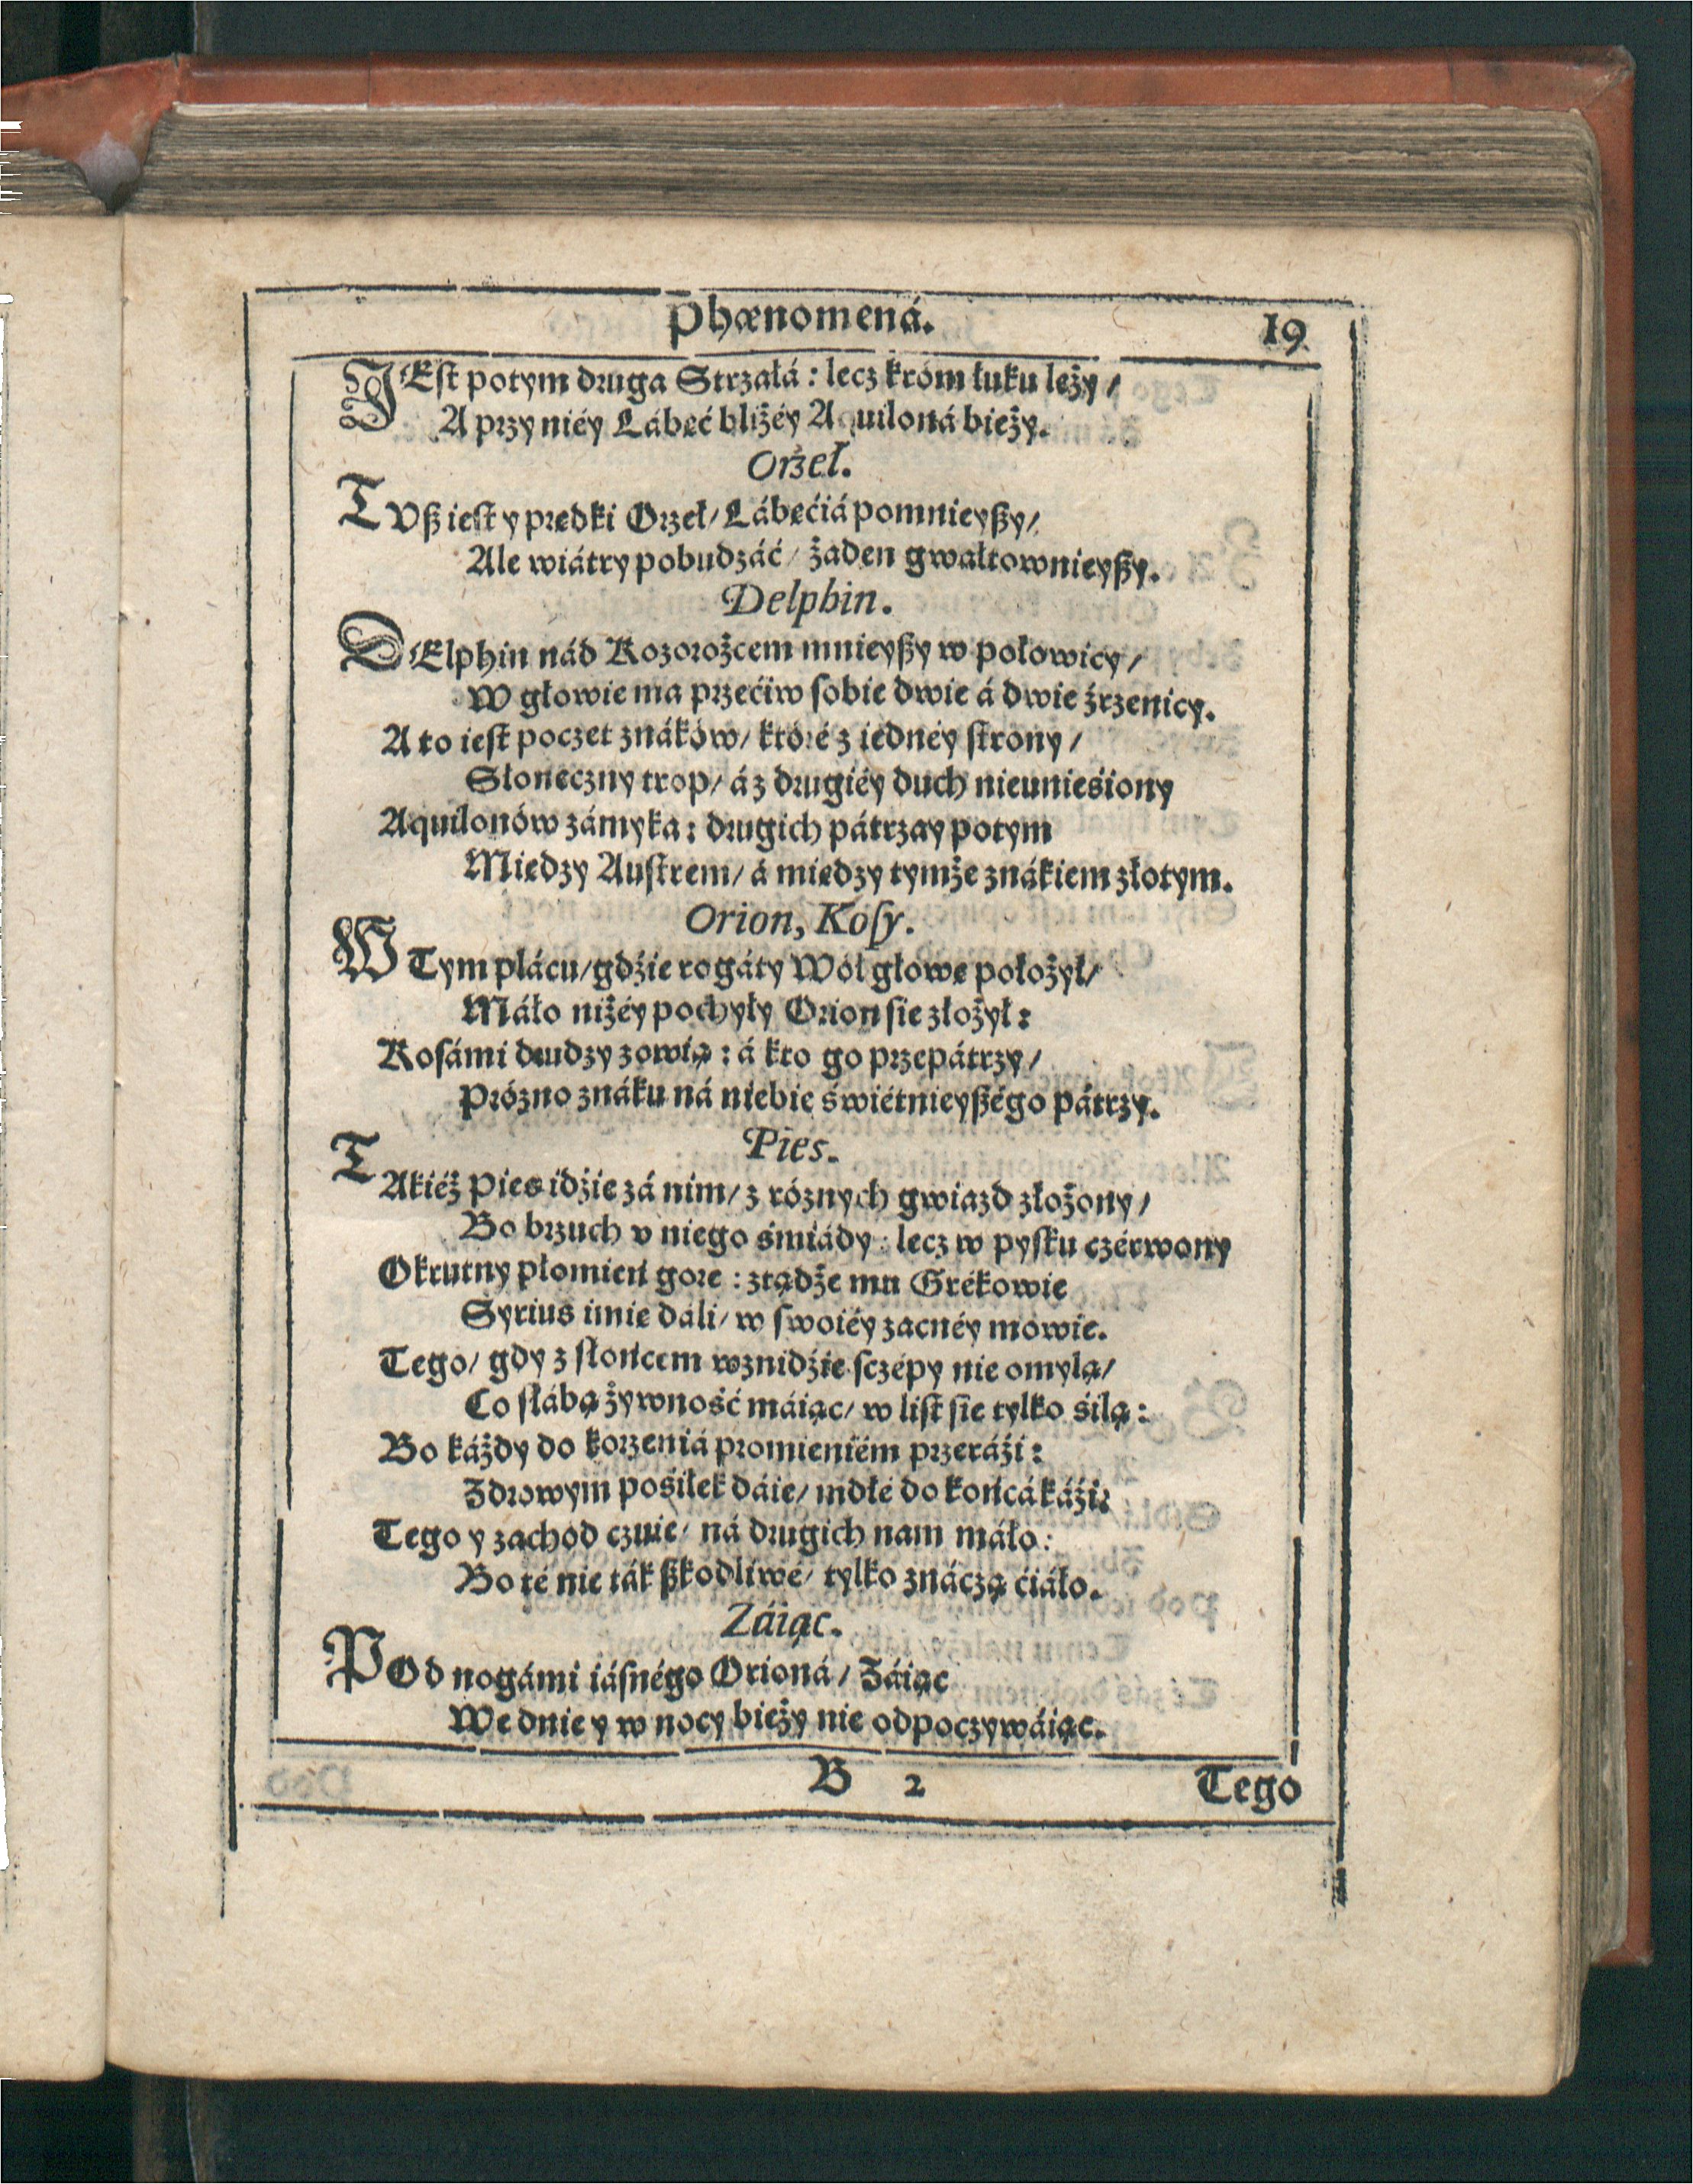 Phænomená.
19
JEst potym druga Strzałá: lecz króm łuku leży/
A przy niéy Lábęć bliżéy Aquiloná bieży.
Orzeł.
TVß iest y prędki Orzeł/ Lábęćiá pomnieyßy/
Ale wiátry pobudzáć/ żaden gwałtownieyßy.
Delphin.
DElphin nád Kozorożcem mnieyßy w połowicy/
W głowie ma przećiw sobie dwie á dwie źrzenicy.
A to iest poczet znáków/ któré z iednéy strony/
Słoneczny trop/ á z drugiéy duch nieunieśiony
Aquilonów zámyka: drugich pátrzay potym
Miedzy Austrem/ á miedzy tymże znákiem złotym.
Orion, Koſy.
W Tym plácu/ gdźie rogáty Wół głowę położył/
Máło niżéy pochyły Orion sie złożył:
Kosámi drudzy zowią: á kto go przepátrzy/
Prózno znáku ná niebie świétnieyßégo pátrzy.
Pies.
TAkiéż Pies idźie zá nim/ z róznych gwiazd złożony/
Bo brzuch v niego śmiády: lecz w pysku czérwony
Okrutny płomień gore: ztądże mu Grékowie
Syrius imię dáli/ w swoiéy zacnéy mowie.
Tego/ gdy z słońcem wznidźie sczépy nie omylą/
Co słábą żywność máiąc/ w list sie tylko śilą:
Bo káżdy do korzeniá promieniém przeráźi:
Zdrowym pośiłek dáie/ mdłé do końcá káźi:
Tego y zachód czuie/ ná drugich nam máło:
Bo té nie ták ßkodliwé/ tylko znáczą ćiáło.
Záiąc.
POd nogámi iásnégo Orioná/ Záiąc
We dnie y w nocy bieży nie odpoczywáiąc.
B 2
Tego